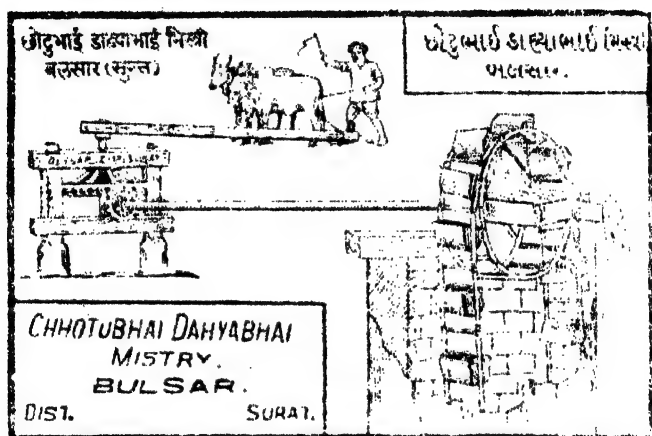 छोटुभाई डाह्याभाई मिस्त्री
बलसार (सुरत)
છોટુભાઈ ડાહ્યાભાઈ મિસ્ત્રી
બલસાર.
CHHOTUBHAI DAHYABHAI
MISTRY.
BULSAR.
DIST. SURAT.